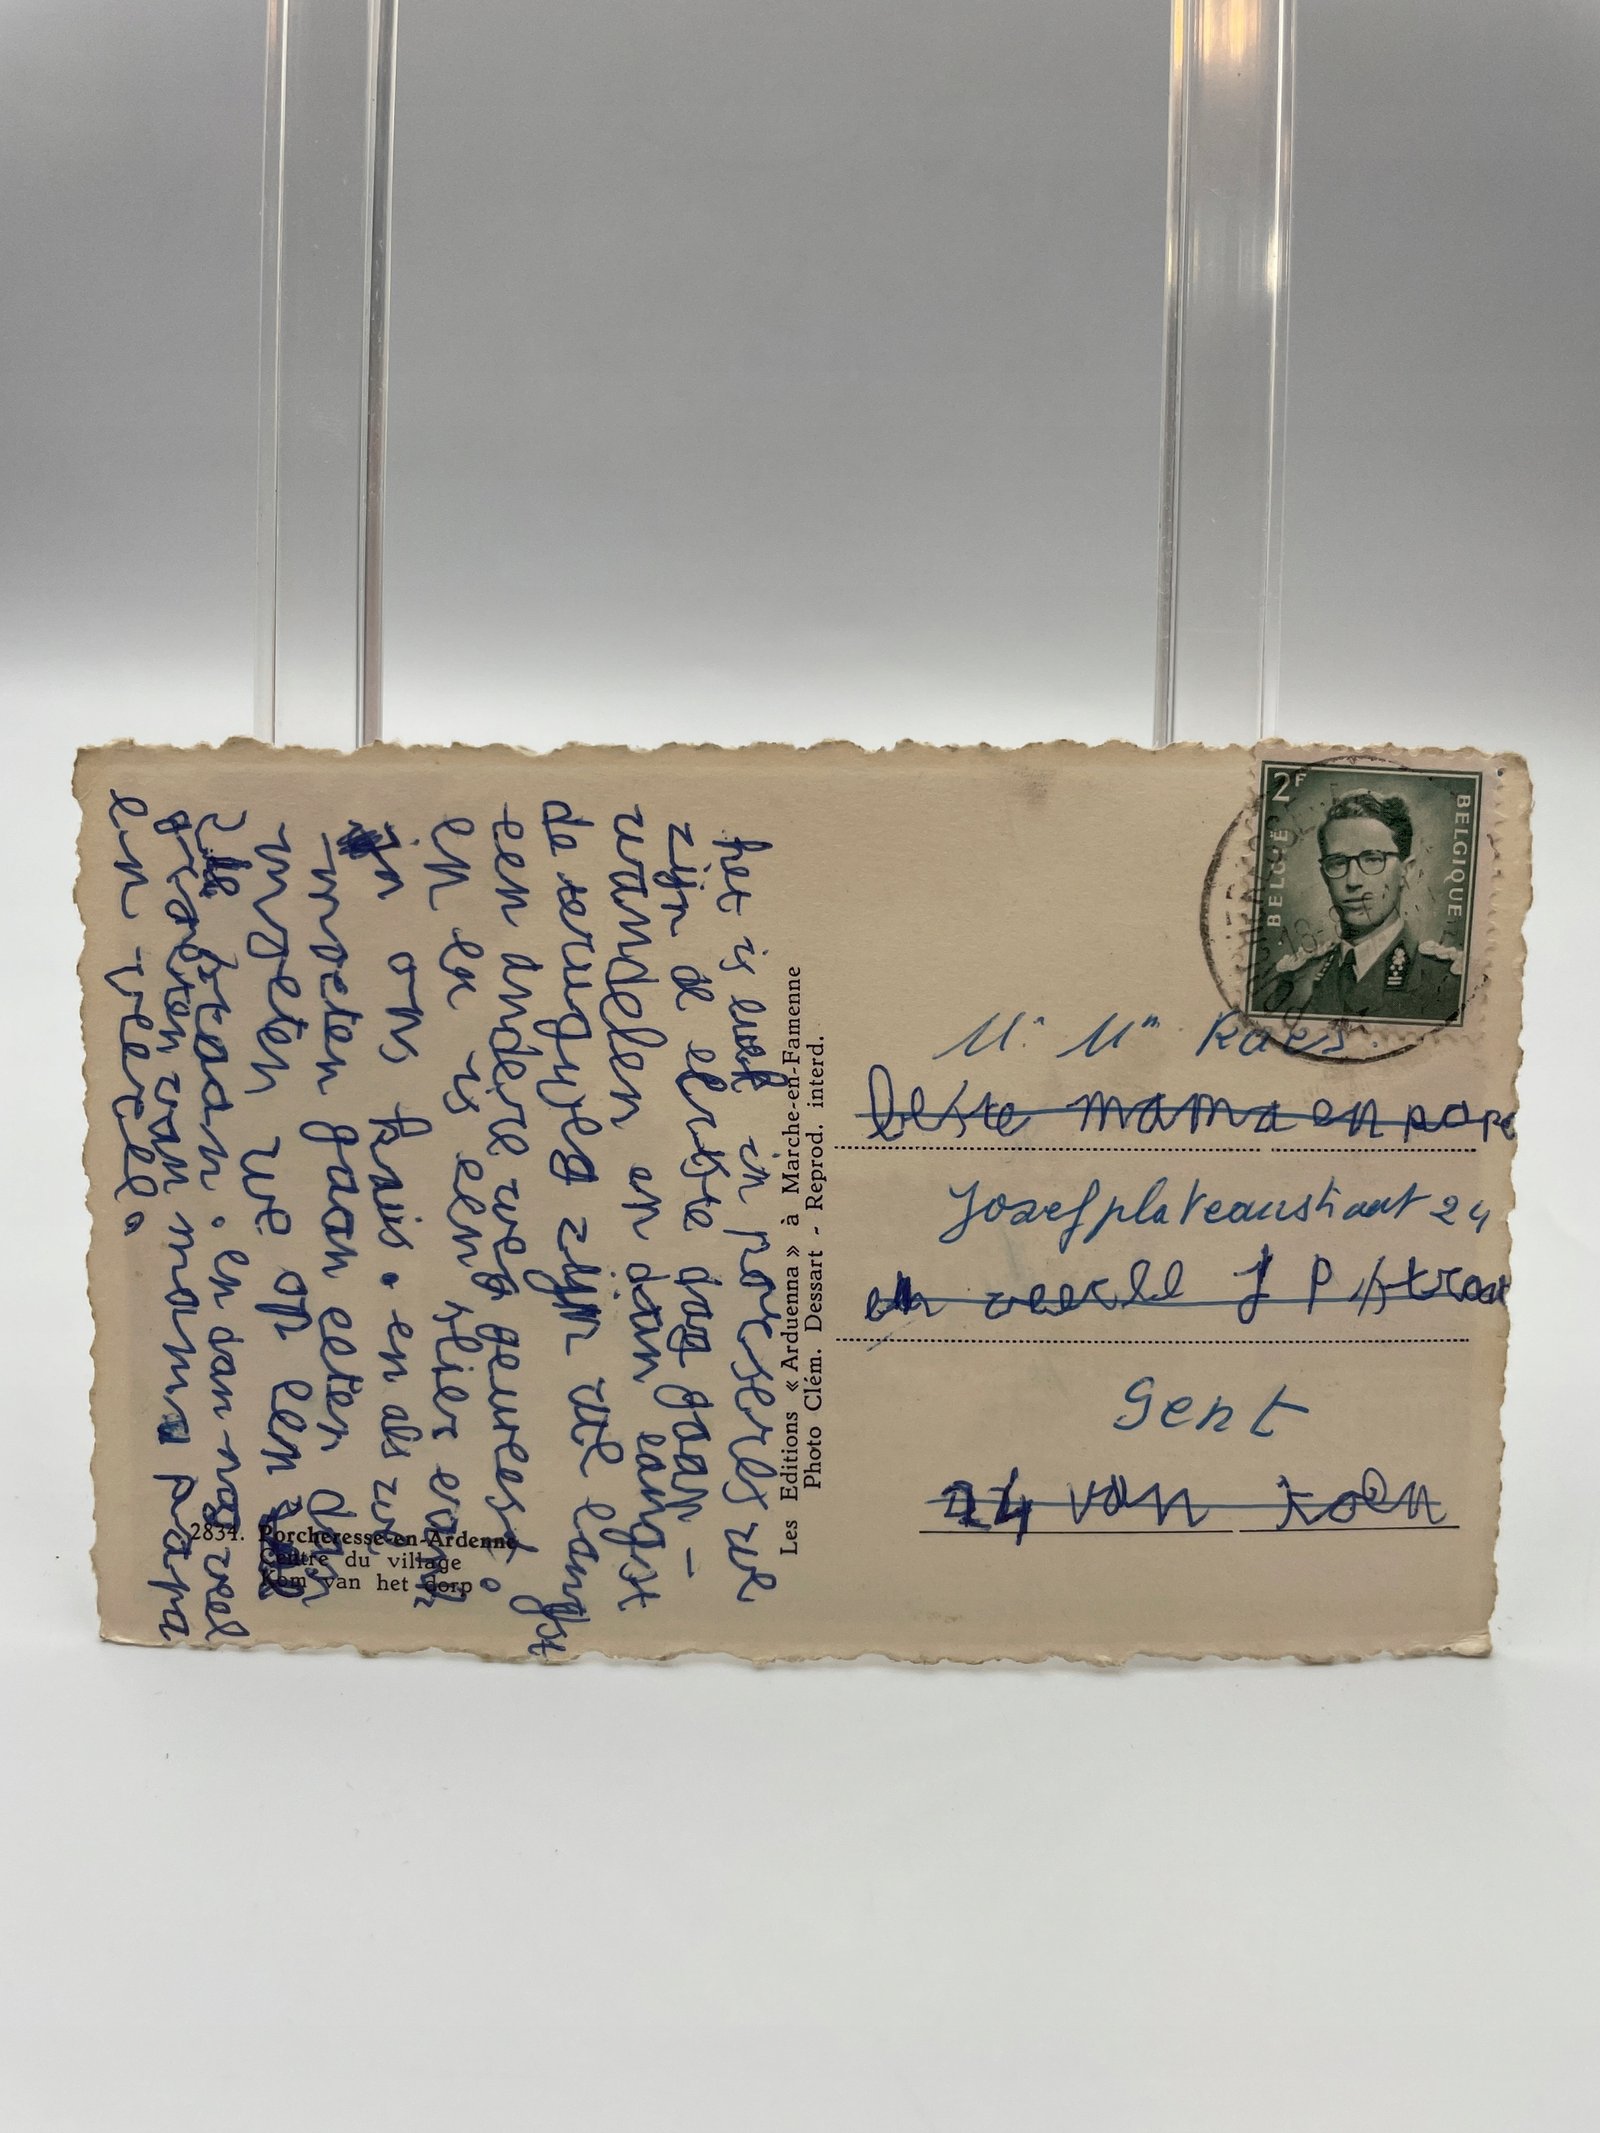 het is leuk in porseres we
zijn de eerste dag gaan -
wandelen en dan langst
de terugweg zijn we langst
een andere weg geweest.
en er is een rivier
in ons huis. en als wij
moeten gaan eeten dan
moeten we op een
staan. en dan nog veel
groeten van mama papa
en veerle.
2834. Porcheresse-en-Ardenne
Centre du village
Kom van het dorp
Les Editions « Arduenna » à Marche-en-Famenne
Photo Clém. Dessart - Reprod. interd.
2F
BELGIE
BELGIQUE
Mr Mm Raes.
beste mama en pape
Jozef plateaustraat 24
en veerle J P straat
Gent
24 van Koen